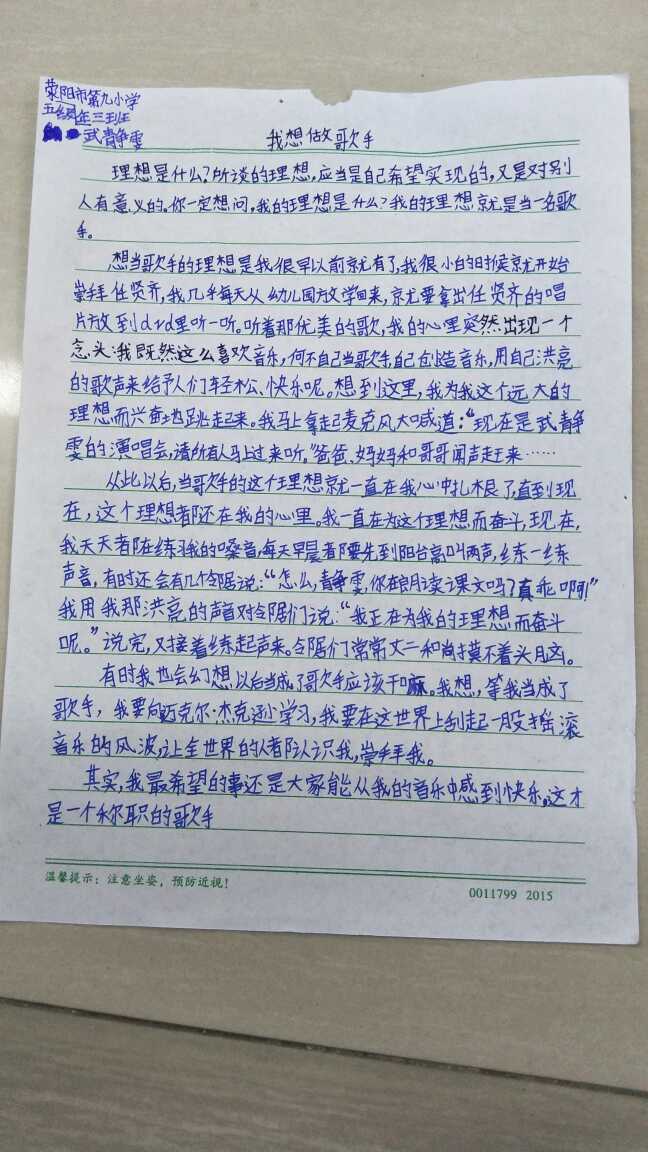 荥阳市第九小学
五年级三班
武静雯
我想做歌手
理想是什么?所谈的理想,应当是自己希望实现的,又是对别
人有意义的。你一定想问,我的理想是什么?我的理想就是当一名歌
手。
想当歌手的理想是我很早以前就有了,我很小的时候就开始
崇拜任贤齐,我几乎每天从幼儿园放学回来,就要拿出任贤齐的唱
片放到dvd里听一听。听着那优美的歌,我的心里突然出现一个
念头:我既然这么喜欢音乐,何不自己当歌手,自己创造音乐,用自己洪亮
的歌声来给予人们轻松、快乐呢。想到这里,我为我这个远大的
理想而兴奋地跳起来。我马上拿起麦克风大喊道:“现在是武静
雯的演唱会,请所有人马上过来听。”爸爸、妈妈和哥哥闻声赶来……
从此以后,当歌手的这个理想就一直在我心中扎根了,直到现
在,这个理想都还在我的心里。我一直在为这个理想而奋斗,现在,
我天天都在练习我的嗓音,每天早晨都要先到阳台高叫两声,练一练
声音,有时还会有几个邻居说:“怎么,静雯,你在朗读课文吗?真乖啊!”
我用我那洪亮的声音对邻居们说:“我正在为我的理想而奋斗
呢。”说完,又接着练起声来。邻居们常常丈二和尚摸不着头脑。
有时我也会幻想以后当成了歌手应该干嘛。我想,等我当成了
歌手,我要向迈克尔·杰克逊学习,我要在这世界上刮起一股摇滚
音乐的风波,让全世界的人都认识我,崇拜我。
其实,我最希望的事还是大家能从我的音乐中感到快乐。这才
是一个称职的歌手
温馨提示:注意坐姿,预防近视!
0011799 2015